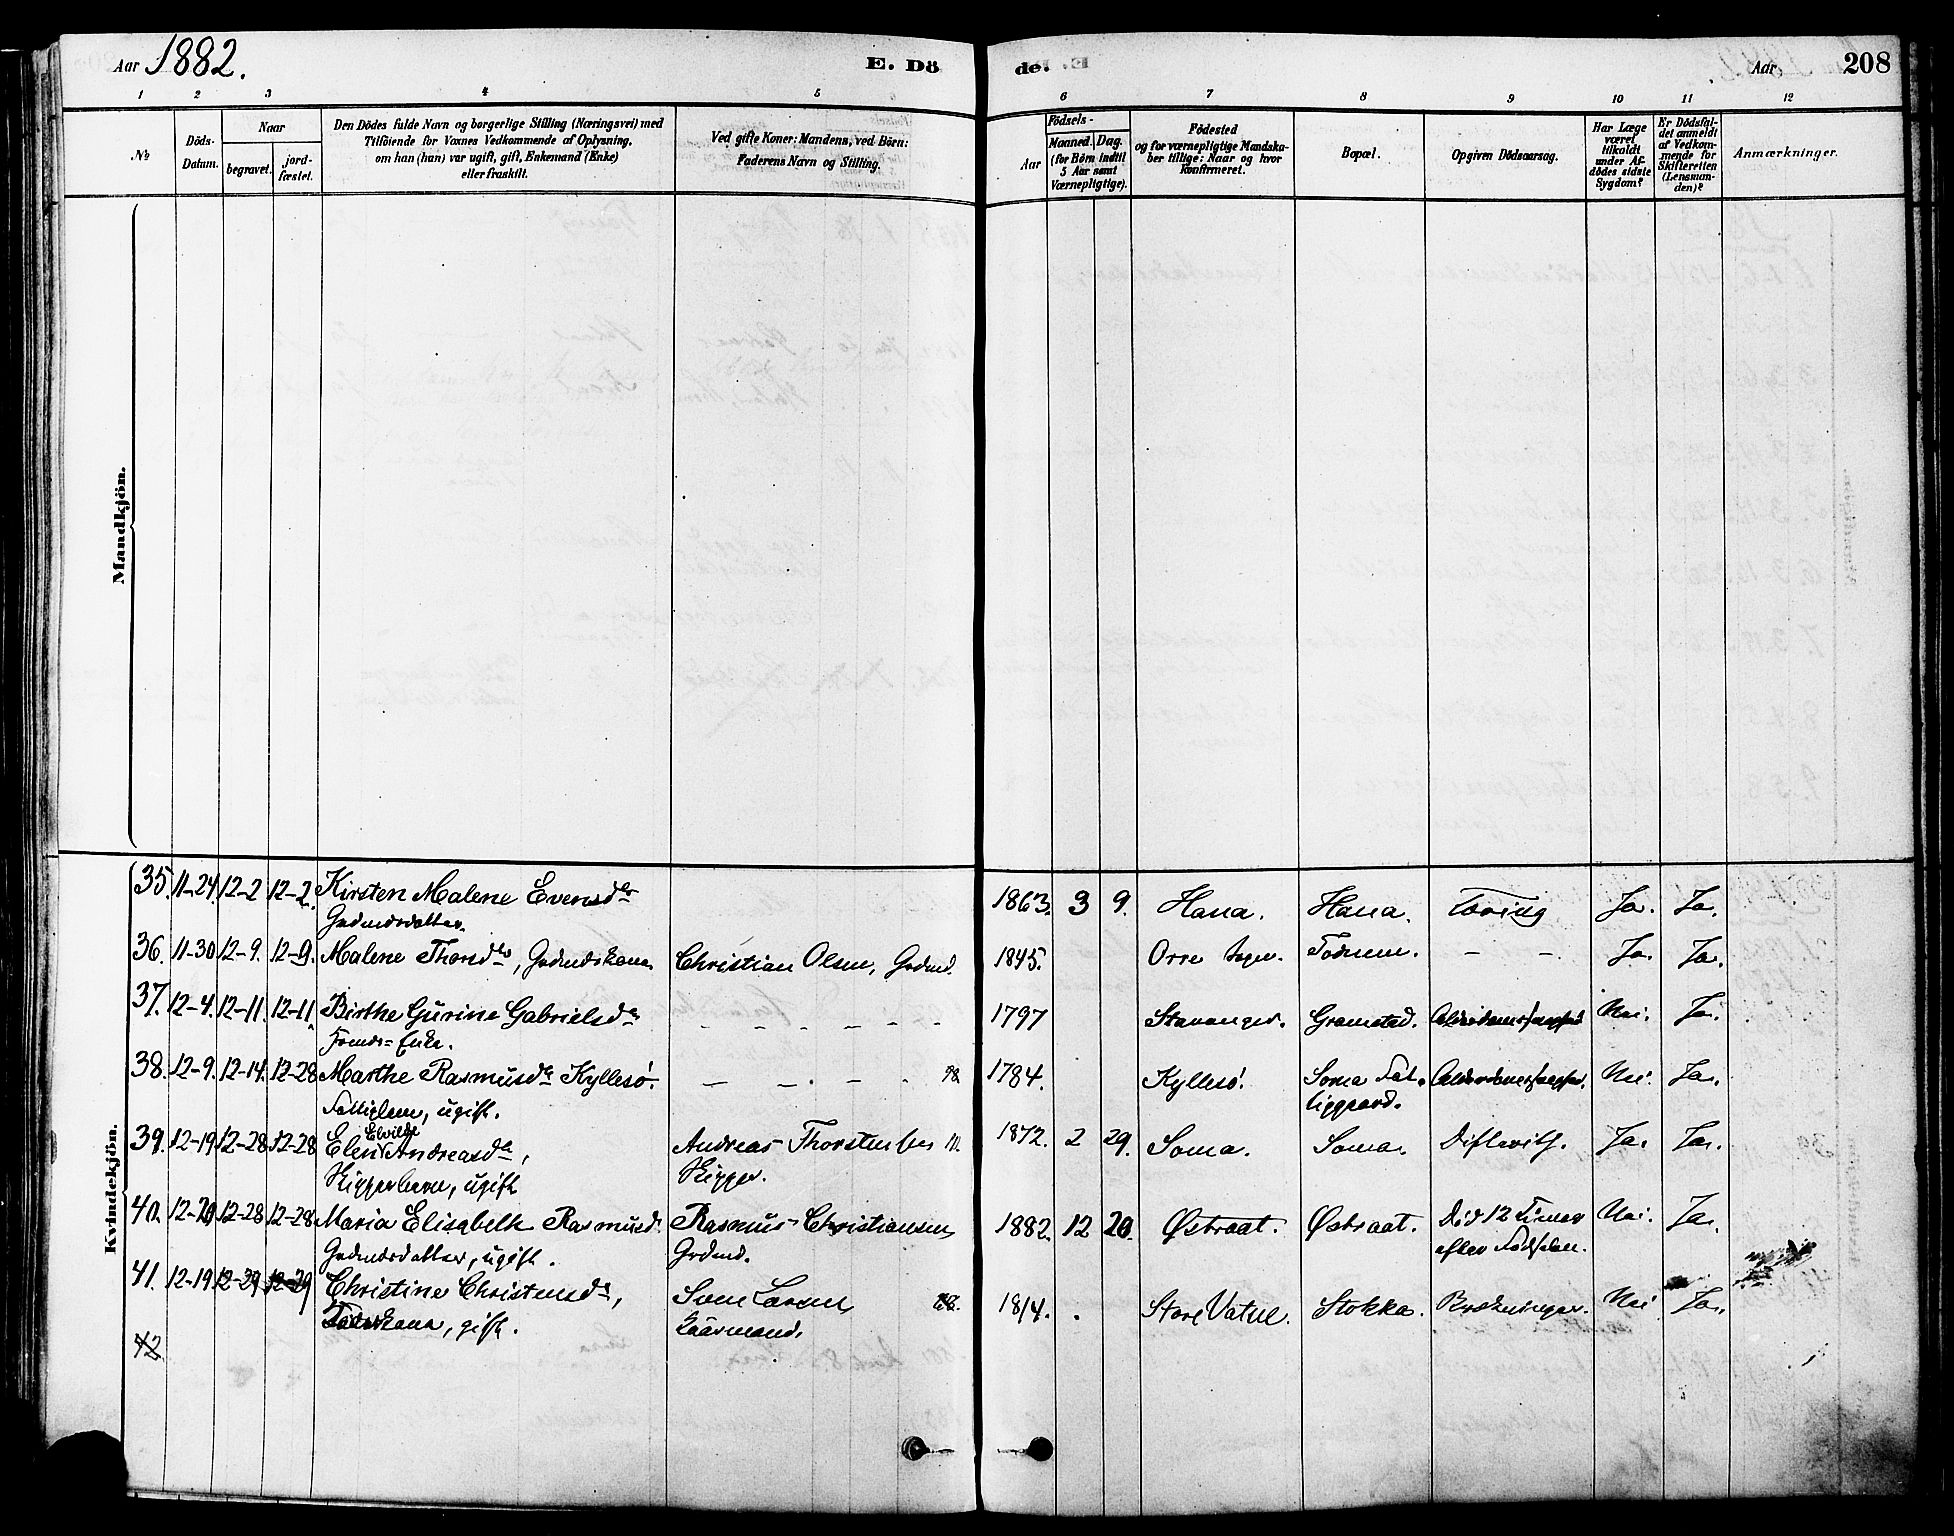 Aar 1882.
E. Dö
de.
Aar
208
1 2 3 4 5 6 7 8 9 10 11 12
No
Döds-
Datum.
Naar
begravet.
jord-
fæstet.
Den Dödes fulde Navn og borgerlige Stilling (Næringsvei) med
Tilföiende for Voxnes Vedkommende af Oplysning,
om han (hun) var ugift, gift, Enkemand (Enke)
eller fraskilt.
Ved gifte Koner: Mandens, ved Börn:
Faderens Navn og Stilling.
Födsels-
Aar
Maaned. Dag.
(for Börn indtil
5 Aar samt
Værnepligtige).
Födested
og for værnepligtige Mandska-
ber tillige: Naar og hvor
konfirmeret.
Bopæl.
Opgiven Dödsaarsag.
Har Læge
været
tilkaldt
under Af-
dödes sidste
Sygdom?
Er Dödsfal-
det anmeldt
af Vedkom-
mende for
Skifteretten
(Lensman-
den)?
Anmærkninger.
Mandkjön.
Kvindekjön.
35. 11-24. 12-2 12-2. Kirsten Malene Evensdr 1863. 3 9. Hana. Hana. Tæring Ja. Ja.
Gaardmdsdatter.
36. 11-30 12-9. 12-9. Malene Thorsdr, Gadmdskone Christian Olsen, Grdmd. 1845. Orre Sogn. Ja. Ja.
37. 12-4. 12-11. 12-11. Birthe Gurine Gabrielsdr — — — — — — 1797 Stavanger. Gramstad. Alderdomssvaghed Nei. Ja.
Enke.
38. 12-9. 12-14. 12-28 Marthe Rasmusdr Kyllesö. — — . — . 1784. Kyllesö. Soma Fat- Alderdomssvaghed. Nei. Ja.
Fattiglem, ugift.
tiggaard.
39. 12-19 12-28 12-28 Elen Elvilde Andreasdr, Andreas Thorstensen 1872. 2 29. Soma. Soma. Difterith. Ja. Ja.
Skipperbarn, ugift
Skipper.
40. 12-20 12-28 12-28 Maria Elisabeth Rasmusd. Rasmus Christiansen 1882. 12 20. Østraat. Østraat. Död 12 Timer Nei. Ja.
Gadmdsdatter, ugift.
Grdmd.
efter Födselen.
41. 12-19. 12-29 12-29 Christine Christensdr, Sven Larsen 1814. . Store Vatne. Stokka. Brækninger. Nei Ja.
gift.
Kaarmand.
42